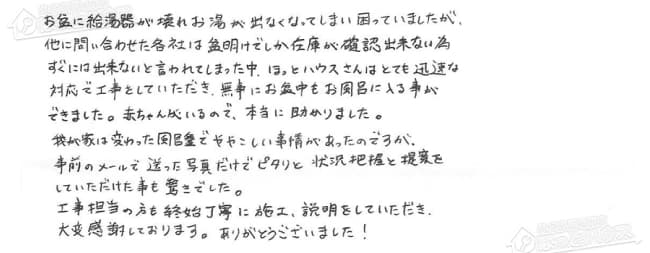 お盆に給湯器が壊れお湯が出なくなってしまい困っていましたが、
他に問い合わせた各社は盆明けでしか在庫が確認出来ない為
すぐには出来ないと言われてしまった中、ほっとハウスさんはとても迅速な
対応で工事をしていただき、無事にお盆中もお風呂に入る事が
できました。赤ちゃんがいるので、本当に助かりました。
我が家は変わった風呂釜でややこしい事情があったのですが、
事前のメールで送った写真だけでピタリと状況把握と提案を
していただけた事も驚きでした。
工事担当の方も終始丁寧に施工、説明をしていただき、
大変感謝しております。ありがとうございました！